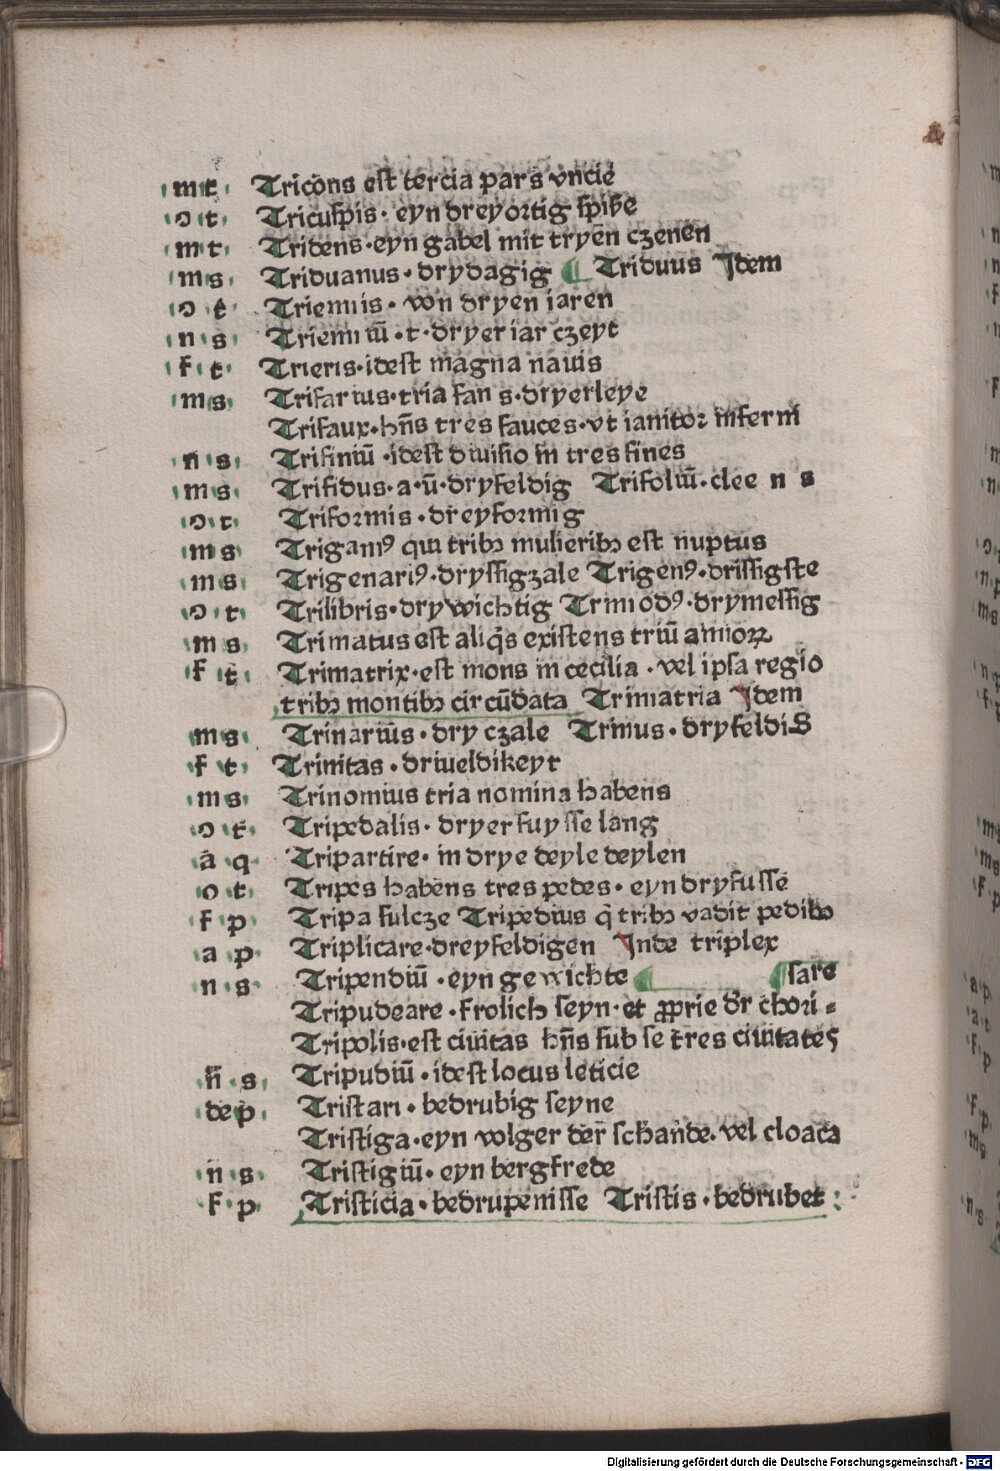 m t Tricōns est tercia pars vncie
ↄ t Tricuspis · eyn dreyortig spisse
m t Tridens · eyn gabel mit tryen czenen
m s Triduanus · drydagig ¶ Triduus Idem
ↄ t Triennis · von dryen iaren
n s Trienniū · t · dryer iar czeyt
f t Trieris · idest magna nauis
m s Trifarius · tria fan s · dryerleye
Trifaux · hn̄s tres fauces · vt ianitor inferni
n s Trifiniū · idest diuisio in tres fines
m s Trifidus · a · ū · dryfeldig Trifoliū · clee n s
ↄ t Triformis · dreyformig
m s Trigamꝰ qui tribꝫ mulieribꝫ est nuptus
m s Trigenariꝰ · dryssigzale Trigenꝰ · drissigste
ↄ t Trilibris · drywichtig Trimodꝰ · drymessig
m s Trimatus est aliq̄s existens triū annoꝝ
f t Trimatrix · est mons in cecilia · vel ipsa regio
tribꝫ montibꝫ circūdata Trimatria Idem
m s Trinariūs · dry czale Trinus · dryfeldis
f t Trinitas · driueldikeyt
m s Trinomius tria nomina habens
ↄ t Tripedalis · dryer fuysse lang
a q Tripartire · in drye deyle deylen
o t Tripes habens tres pedes · eyn dryfusse
f p Tripa fulcze Tripedius q̄ tribꝫ vadit pedibꝫ
a p Triplicare · dreyfeldigen Inde triplex
n s Tripendiū · eyn gewichte ¶ ¶ sare
Tripudeare · frolich seyn · et ꝓprie dr̄ chori=
Tripolis · est ciuitas hn̄s sub se tres ciuitates
n̄ s Tripudiū · idest locus leticie
de p Tristari · bedrubig seyne
Tristiga · eyn volger der schande · vel cloaca
n s Tristigiū · eyn bergfrede
f p Tristicia · bedrupenisse Tristis · bedrubet :
Digitalisierung gefördert durch die Deutsche Forschungsgemeinschaft - DFG